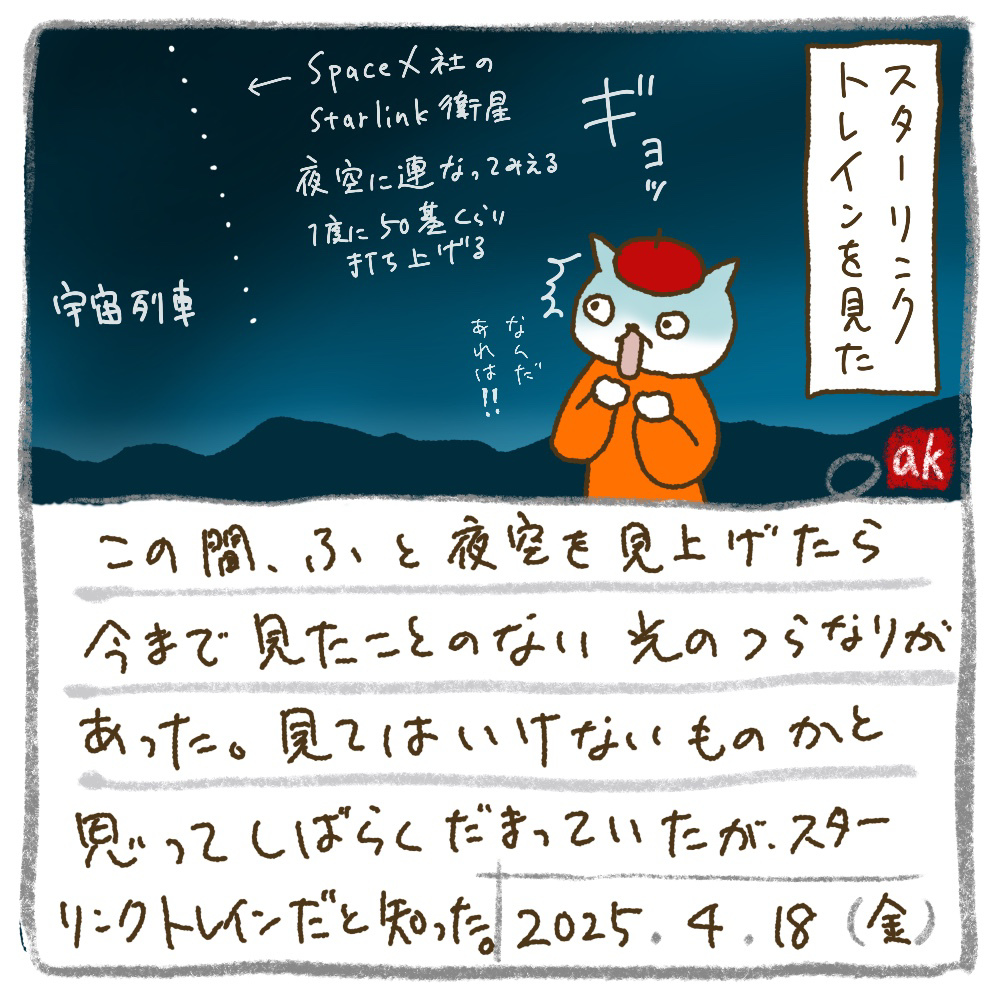 スターリンク
トレインを見た
SpaceX社の
Starlink衛星
夜空に連なってみえる
1度に50基くらい
打ち上げる
宇宙列車
ギョッ
なんだ
あれは!!
ak
この間、ふと夜空を見上げたら
今まで見たことのない光のつらなりが
あった。見てはいけないものかと
思ってしばらくだまっていたが、スター
リンクトレインだと知った。
2025.4.18(金)